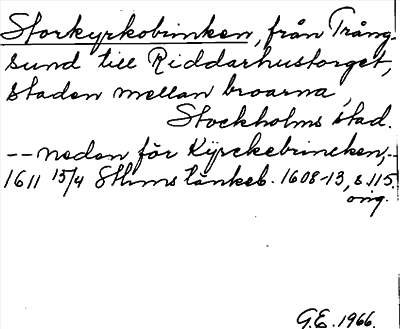 Storkyrkobrinken, från Trång-
sund till Riddarhustorget,
Staden mellan broarna,
Stockholms stad.
-- neden för Kÿrckebrincken, --
1611 15/4 Sthms tänkeb. 1608-13, s. 115.
orig.
G.E. 1966.